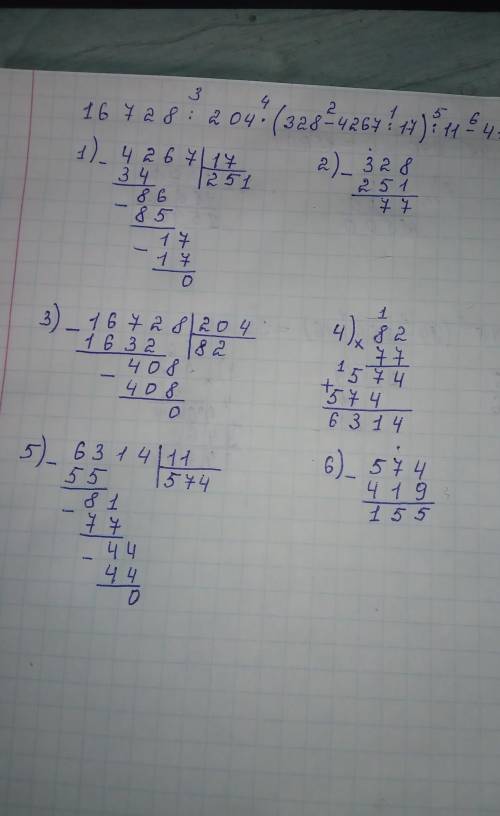 16 728 : 204 · (328 - 4267 : 17) : 11 - 4
3 4 2 1 5 6
1) - 4267 | 17
34 | 251
- 86
85
- 17
17
0
2) - 328
251
77
3) - 16728 | 204
1632 | 82
- 408
408
0
4) 1
x 82
77
1
+ 574
574
6314
5) - 6314 | 11
55 | 574
- 81
77
- 44
44
0
6) - 574
419
155